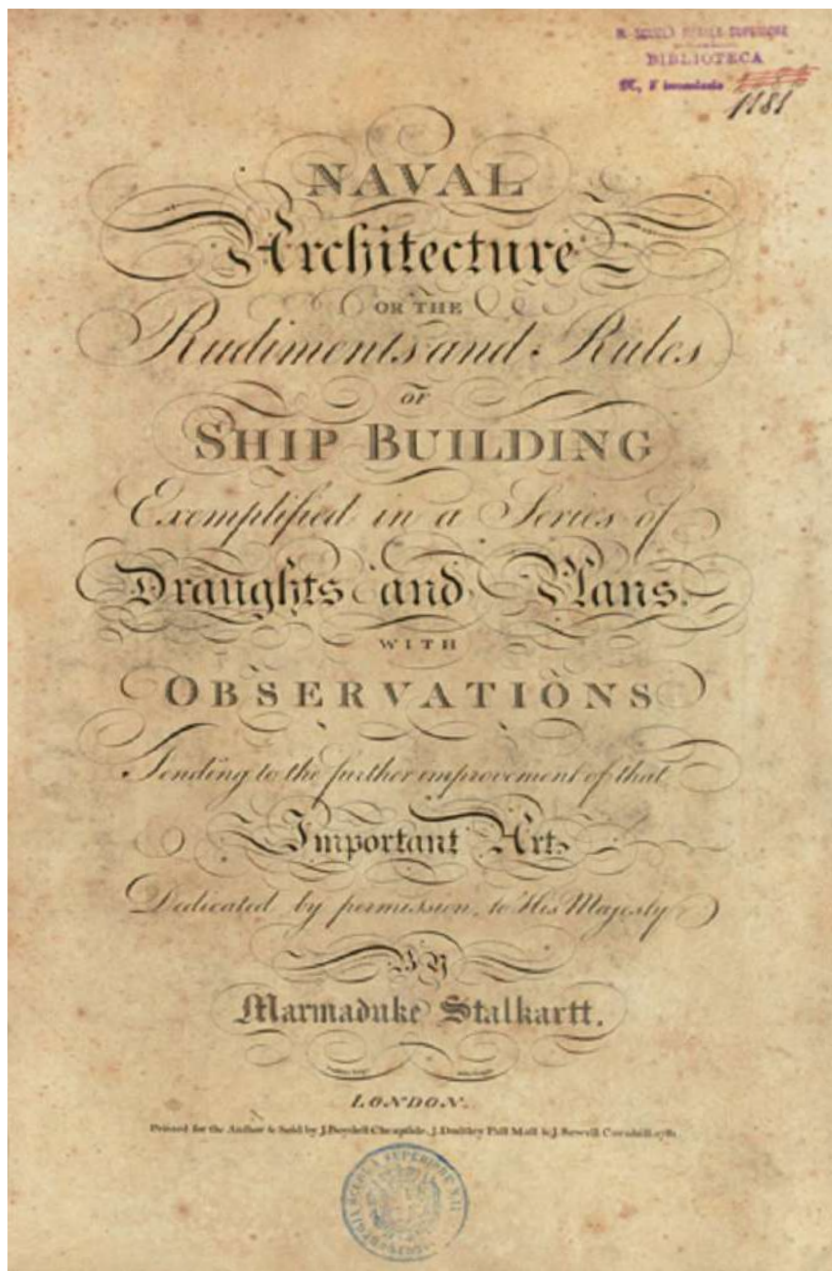 R. SCUOLA NAVALE SUPERIORE
BIBLIOTECA
N. d'inventario
1181
NAVAL
Architecture
OR THE
Rudiments and Rules
OF
SHIP BUILDING
Exemplified in a Series of
Draughts and Plans.
WITH
OBSERVATIONS
Tending to the further improvement of that
Important Art.
Dedicated by permission, to His Majesty
BY
Marmaduke Stalkartt.
LONDON.
Printed for the Author & Sold by J. Boydell Cheapside, J. Dodsley Pall Mall & J. Sewell Cornhill. 1781.
SCUOLA SUPERIORE